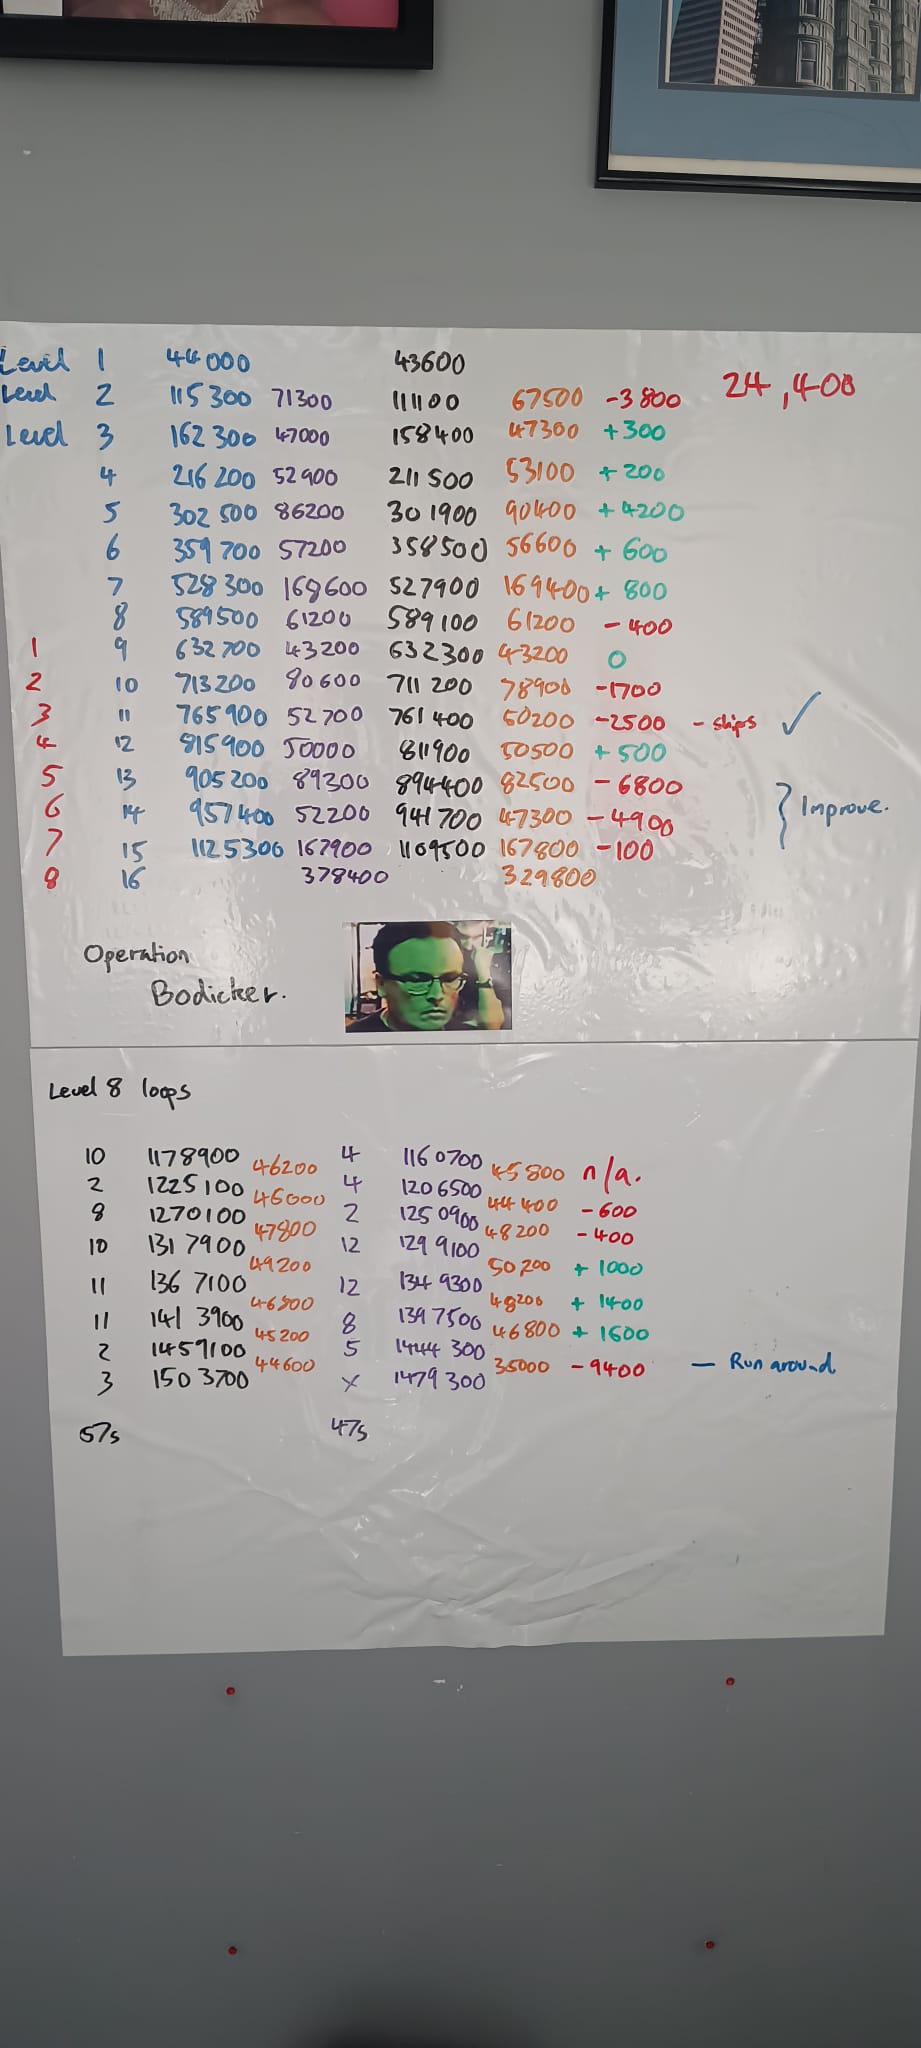 Level 1 44000 43600
Level 2 115300 71300 111100 67500 -3800 24,400
Level 3 162300 47000 158400 47300 +300
4 216200 52900 211500 53100 +200
5 302500 86200 301900 90400 +4200
6 359700 57200 358500 56600 + 600
7 528300 168600 527900 169400 + 800
8 589500 61200 589100 61200 - 400
1 9 632700 43200 632300 43200 0
2 10 713200 80600 711200 78900 -1700
3 11 765900 52700 761400 50200 -2500 - ships ✓
4 12 815900 50000 811900 50500 + 500
5 13 905200 89300 894400 82500 - 6800
6 14 957400 52200 941700 47300 - 4900 } Improve.
7 15 1125300 167900 1109500 167800 -100
8 16 378400 329800
Operation
Bodicker.
Level 8 loops
10 1178900 4 1160700
46200 45800 n/a.
2 1225100 4 1206500
46000 44400 -600
8 1270100 2 1250900
47800 48200 -400
10 1317900 12 1299100
49200 50200 + 1000
11 1367100 12 1349300
46800 48200 + 1400
11 1413900 8 1397500
45200 46800 + 1600
2 1459100 5 1444300
44600 35000 - 9400 — Run around
3 1503700 x 1479300
57s 47s